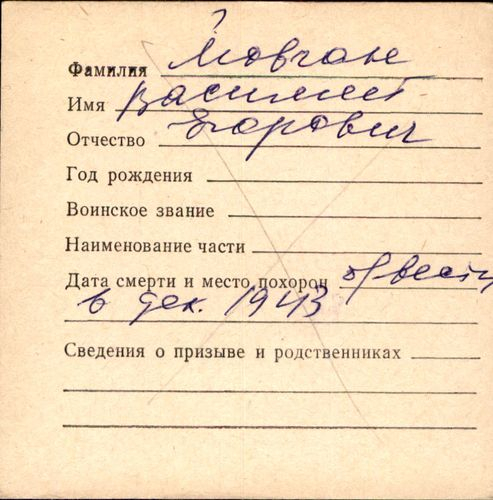 ?
Фамилия Мовчан
Имя Василий
Отчество Егорович
Год рождения
Воинское звание
Наименование части
Дата смерти и место похорон б/вести
в дек. 1943
Сведения о призыве и родственниках